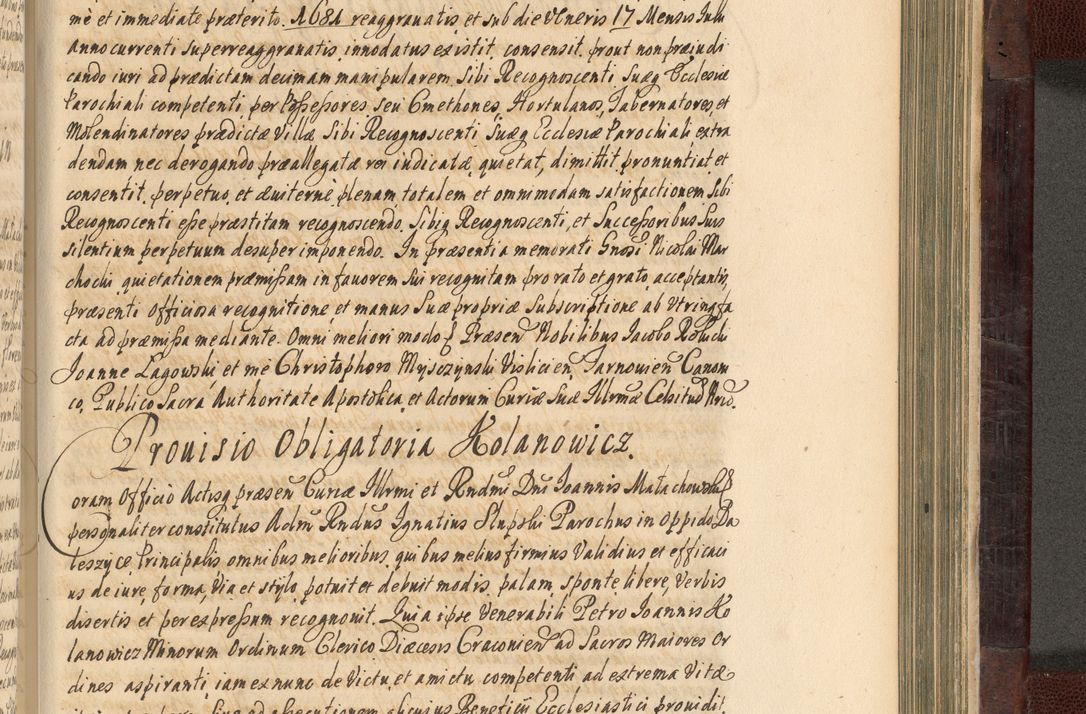 mè et immediate præterito. 1681 reaggrauatis et sub die Veneris 17 Mensis Julii
anno currenti superreaggrauatis innodatus existit, consensit, prout non præiudi
cando iuri ad prædictam decimam manipularem Sibi Recognoscenti Suæq Ecclesiæ
Parochiali competenti per Possessores seu Cmethones, Hortulanos, Tabernatores, et
Molendinatores prædictæ Villæ Sibi Recognoscenti Suæq Ecclesiæ Parochiali extra
dendam nec derogando præallegatæ rei iudicatæ, quietat, dimittit, pronuntiat et
consentit, perpetuo, et æuiternè, plenam totalem et omnimodam satisfactionem Sibi
Recognoscenti esse præstitam recognoscendo, Sibiq Recognoscenti, et Successoribus Suis
silentium perpetuum desuper imponendo. In præsentia memorati Gnosi Nicolai Mar
chochi quietationem præmissam in fauorem Sui recognitam pro rato et grato acceptantis,
præsenti Officiosa recognitione et manus Suæ propriæ Subscriptione ab Utrinq fa
cta ad præmissa mediante. Omni meliori modo Præsen Nobilibus Jacobo
Joanne Lagowski et me Christophoro Myszczynski Vislicien, Tarnouien Canoni
co, Publico Sacra Authoritate Apostolica, et Actorum Curiæ Suæ Illrmæ Celsitud Nrio.
Prouisio Obligatoria Kolanowicz.
Coram Officio Actisq præsen Curiæ Illrmi et Rndmi Dni Joannis Małachowski
personaliter constitutus Admū Rndus Ignatius Słupski Parochus in Oppido Da
leszyce Principalis omnibus melioribus, quibus melius firmius Validius et efficaci
us de iure, forma, Via et stylo, potuit et debuit modis, palam, sponte libere, Verbis
disertis et per expressum recognouit. Quia ipse Venerabili Petro Joannis Ko
lanowicz Minorum Ordinum Clerico Diæcesis Cracouien ad Sacros Maiores Or
dines aspiranti, iam ex nunc de Victu, et amictu competenti ad extrema Vitæ
ad assecutionem alicuius Beneficij Ecclesiastici prouidit,